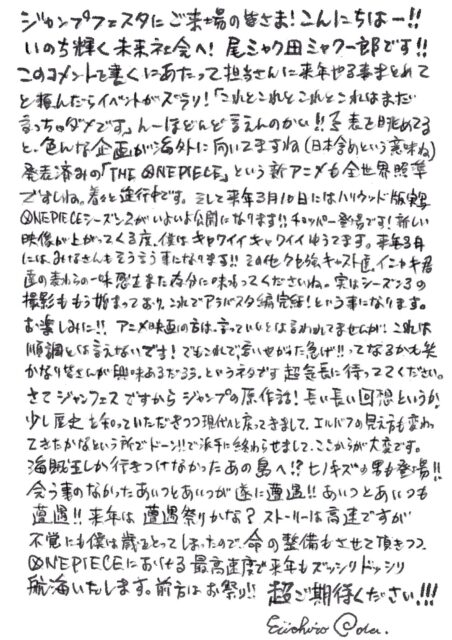 ジャンプフェスタにご来場の皆さま!こんにちはー!!
いのち輝く未来社会へ!尾ミャク田ミャク一郎です!!
このコメントを書くにあたって担当さんに来年やる事まとめて
と頼んだらイベントがズラリ!「これとこれとこれとこれはまだ
言っちゃダメです」んーほどんど言えんのかい!!予表を眺めてると
色んな企画が海外に向いてますね(日本含めという意味ね)
発表済みの「THE ONE PIECE」という新アニメも全世界照準
ですしね。着々と進行中です。そして来年3月10日にはハリウッド版実写
ONE PIECEシーズン2がいよいよ公開になります!!チョッパー登場です!新しい
映像が上がってくる度、僕はキャワイイキャワイイゆうてます。来年3月
には、みなさんもそう言う事になります!!その他クセ強キャスト達、イニャキ君
直の麦わらの一味感をまた存分に味わってくださいね。実はシーズン3の
撮影ももう始まっており、これでアラバスタ編完結!という事になります。
お楽しみに!!アニメ映画の方は、言っていいとは言われてませんが、これは
順調とは言えないです!でもこれで言いやがった急げ!!ってなるかも笑
かなり皆さんが興味あるだろう、というネタです 超気長に待っててください。
さてジャンフェスですからジャンプの原作話!長い長い回想というか
少し歴史を知っていただきつつ現代へと戻ってきまして、エルバフの見え方も変わっ
てきたかなという所でドーン!!で派手に終わらせまして、ここからが大変です。
海賊王しか行きつけなかったあの島へ!?ヒノキズの男も登場!!
会う事のなかったあいつとあいつが遂に遭遇!!あいつとあいつも
遭遇!!来年は遭遇祭りかな?ストーリーは高速ですが
不覚にも僕は歳をとってしまったので、命の整備もさせて頂きつつ
ONE PIECEにおける最高速度で来年もズッシリドッシリ
航海いたします。前方はお祭り!!超ご期待ください!!!
Eiichiro Oda.